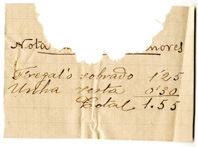 Nota mores
Fregal's sobrado 1.25
Unha cesta 0'30
Total 1.55